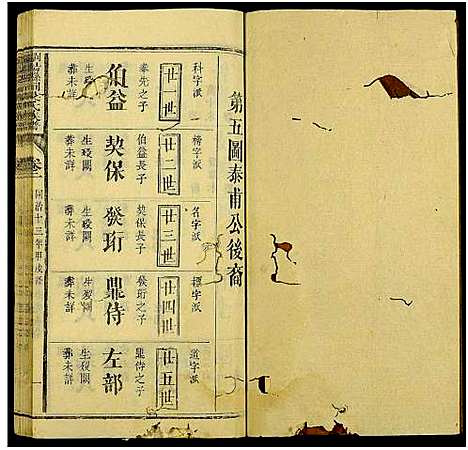 第五圖泰甫公後裔
科字派
廿一世
奉先之子
伯益
生歿闕
葬未詳
榜字派
廿二世
伯益長子
契保
生歿闕
葬未詳
名字派
廿三世
契保長子
發珩
生歿闕
葬未詳
標字派
廿四世
發珩之子
鼎侍
生歿闕
葬未詳
道字派
廿五世
鼎侍之子
左部
生歿闕
葬未詳
卷二
同治十三年甲戌